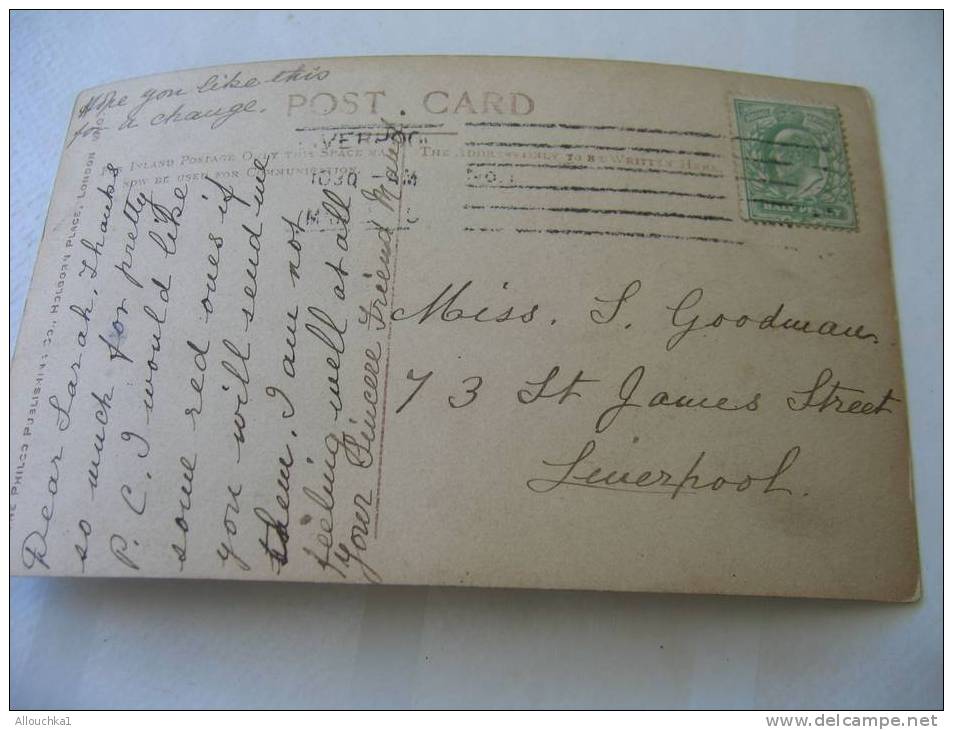 Hope you like this
for a change.
POST CARD
INLAND POSTAGE ONLY THIS SPACE MAY
NOW BE USED FOR COMMUNICATION.
THE ADDRESS ONLY TO BE WRITTEN HERE
LIVERPOOL
1030
THE PHILCO PUBLISHING CO., HOLBORN PLACE, LONDON
Dear Sarah. Thanks
so much for pretty
P. C. I would like
some red ones if
you will send me
them. I am not
feeling well at all
Your Sincere Friend
Miss. S. Goodman
73 St James Street
Liverpool.
Allouchka1
www.delcampe.net